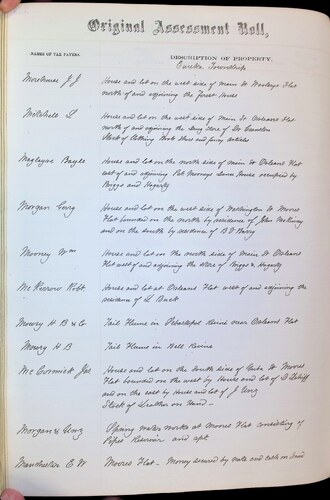 Original Assessment Roll,
NAMES OF TAX PAYERS.
DESCRIPTION OF PROPERTY.
Eureka Township
Morehouse J. J.
House and lot on the west side of main St Woolsey Flat
north of and adjoining the Forest House
Mitchell L
House and lot on the west side of main St Orleans Flat
north of and adjoining the Drug Store of Dr
Stock of Clothing Boots Shoes and fancy articles
Bayle
House and lot on the north side of main St Orleans Flat
west of and adjoining Pat Mooneys house occupied by
Briggs and Hagerty
Morgan
House and lot on the west side of Washington St Moores
Flat bounded on the north by residence of John McKinny
and on the south by residence of
Mooney Wm
House and lot on the north side of Main St Orleans
Flat west of and adjoining the store of Briggs & Hagerty
Robt
House and lot at Orleans Flat west of and adjoining the
residence of L Buck
Mowry H B & Co
Tail Flume in Ravine near Orleans Flat
Mowry H B
Tail Flume in Bell Ravine
McCormick Jas
House and lot on the South side of St Moores
Flat bounded on the west by House and lot of
and on the east by House and lot of J Unz
Stock of Leather on Hand
Morgan & Unz
Spring water works at Moores Flat consisting of
Pipes Reservoir and
E W
Moores Flat - Money secured by note and cash on hand